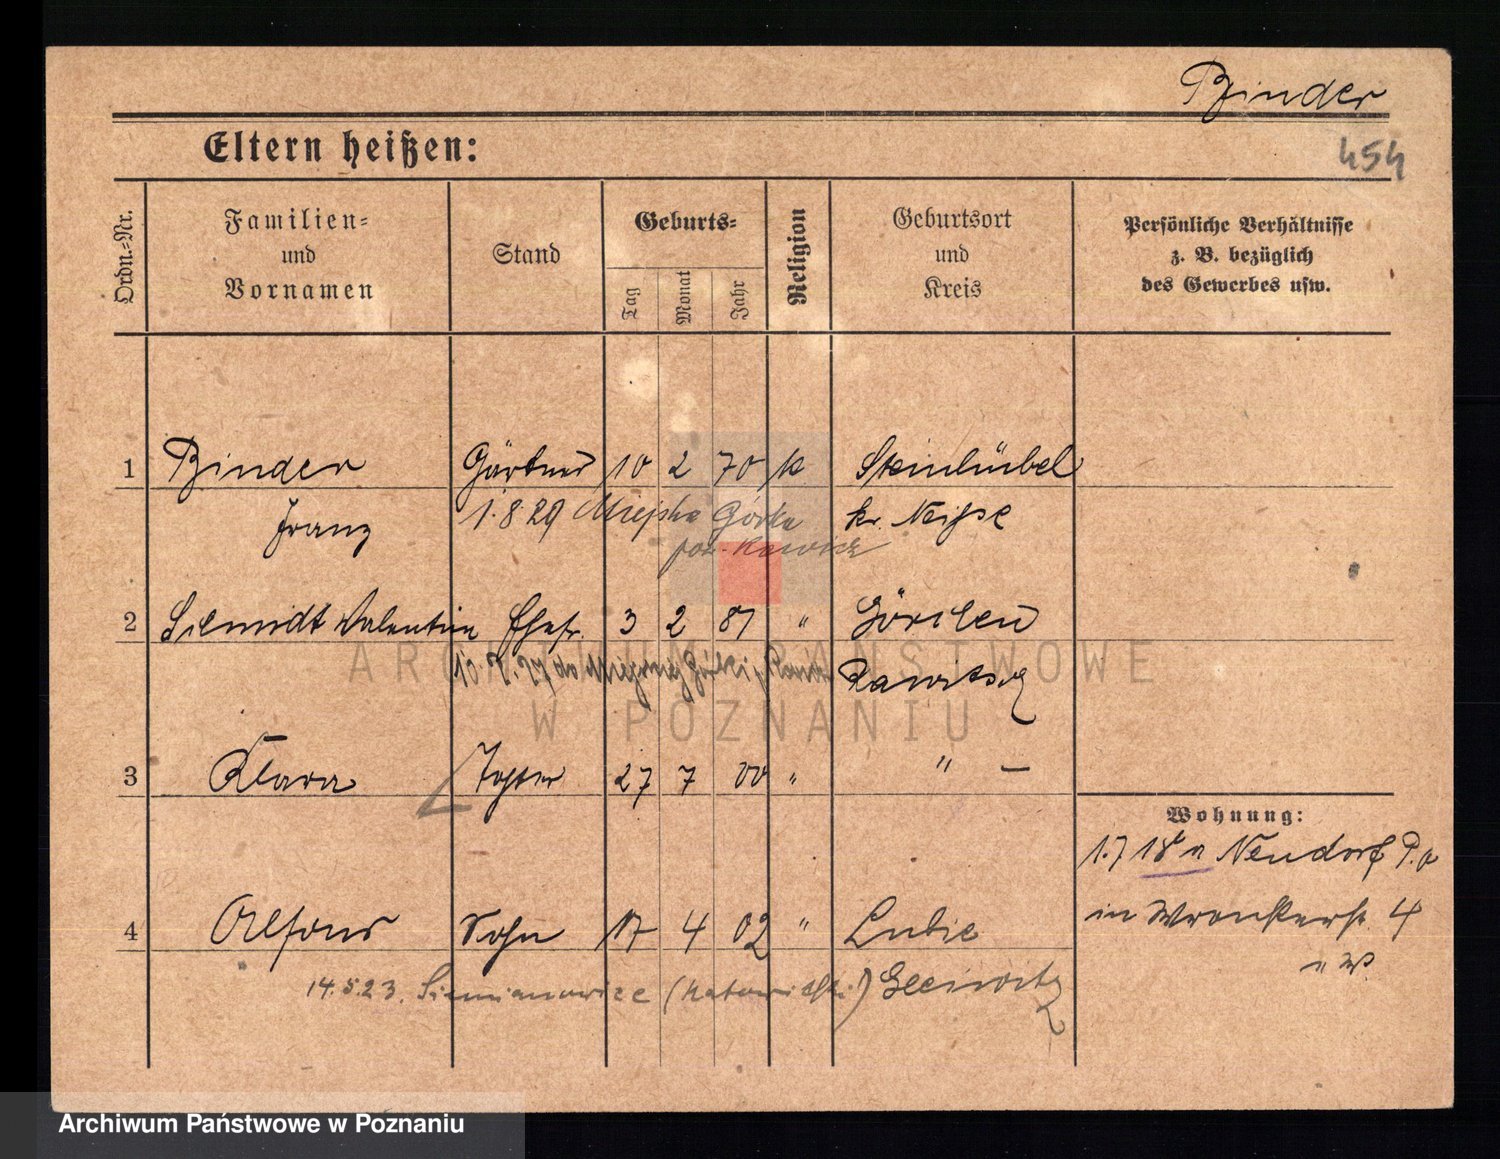 Binder
Eltern heißen:
454
Ordn.=Nr.
Familien=
und
Vornamen
Stand
Geburts=
Tag
Monat
Jahr
Religion
Geburtsort
und
Kreis
Persönliche Verhältnisse
z. B. bezüglich
des Gewerbes usw.
1 Binder Gärtner 10 2 70 k Steinhübel
Franz 1.8.29 Miejska Górka kr. Neisse
pow. Rawicz
2 Schmidt Valentine Ehefr. 3 2 81 " Görchen
Rawitsch
3 Klara Tochter 27 7 00 " " —
Wohnung:
1.7 18 n Neudorf P. a
4 Alfons Sohn 17 4 02 " Lubie
in Wronkerst 4
14.5.23. Siemianowice (Katowicki) Gleiwitz
ARCHIWUM PAŃSTWOWE
W POZNANIU
Archiwum Państwowe w Poznaniu